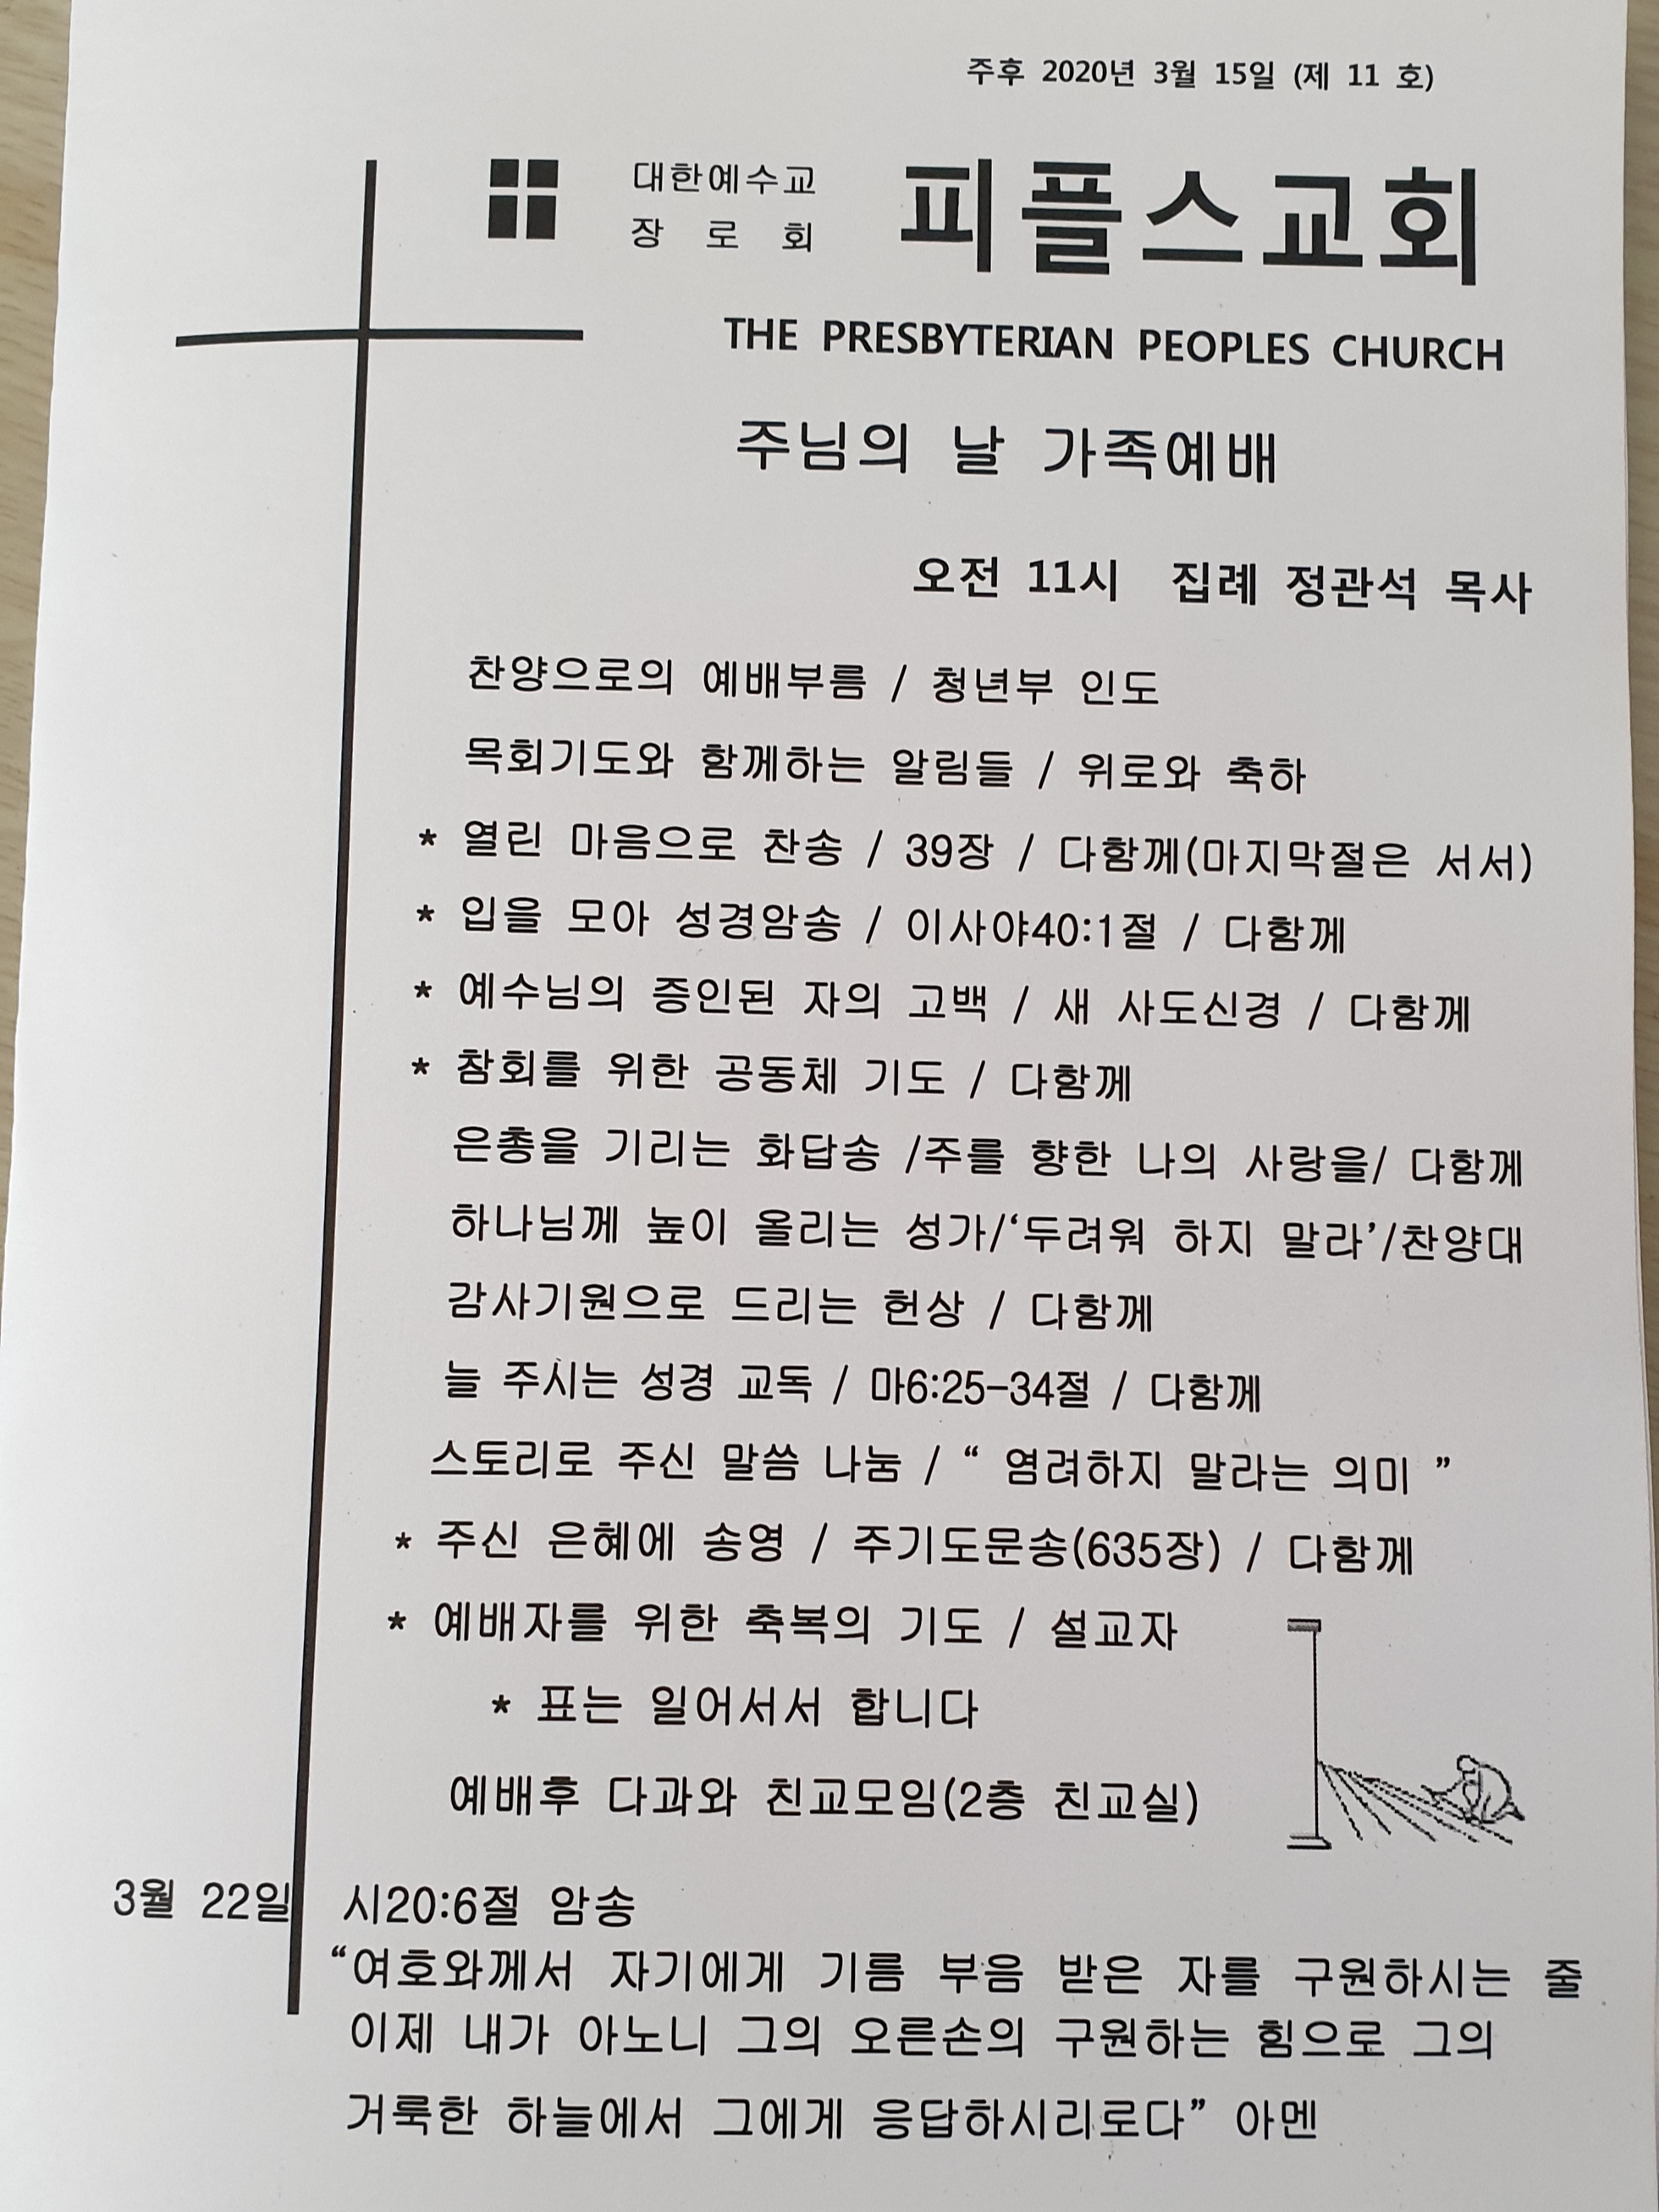 주후 2020년 3월 15일 (제 11 호)
대한예수교
장 로 회
피플스교회
THE PRESBYTERIAN PEOPLES CHURCH
주님의 날 가족예배
오전 11시 집례 정관석 목사
찬양으로의 예배부름 / 청년부 인도
목회기도와 함께하는 알림들 / 위로와 축하
* 열린 마음으로 찬송 / 39장 / 다함께(마지막절은 서서)
* 입을 모아 성경암송 / 이사야40:1절 / 다함께
* 예수님의 증인된 자의 고백 / 새 사도신경 / 다함께
* 참회를 위한 공동체 기도 / 다함께
은총을 기리는 화답송 /주를 향한 나의 사랑을/ 다함께
하나님께 높이 올리는 성가/‘두려워 하지 말라’/찬양대
감사기원으로 드리는 헌상 / 다함께
늘 주시는 성경 교독 / 마6:25-34절 / 다함께
스토리로 주신 말씀 나눔 / “ 염려하지 말라는 의미 ”
* 주신 은혜에 송영 / 주기도문송(635장) / 다함께
* 예배자를 위한 축복의 기도 / 설교자
* 표는 일어서서 합니다
예배후 다과와 친교모임(2층 친교실)
3월 22일 시20:6절 암송
“여호와께서 자기에게 기름 부음 받은 자를 구원하시는 줄
이제 내가 아노니 그의 오른손의 구원하는 힘으로 그의
거룩한 하늘에서 그에게 응답하시리로다” 아멘